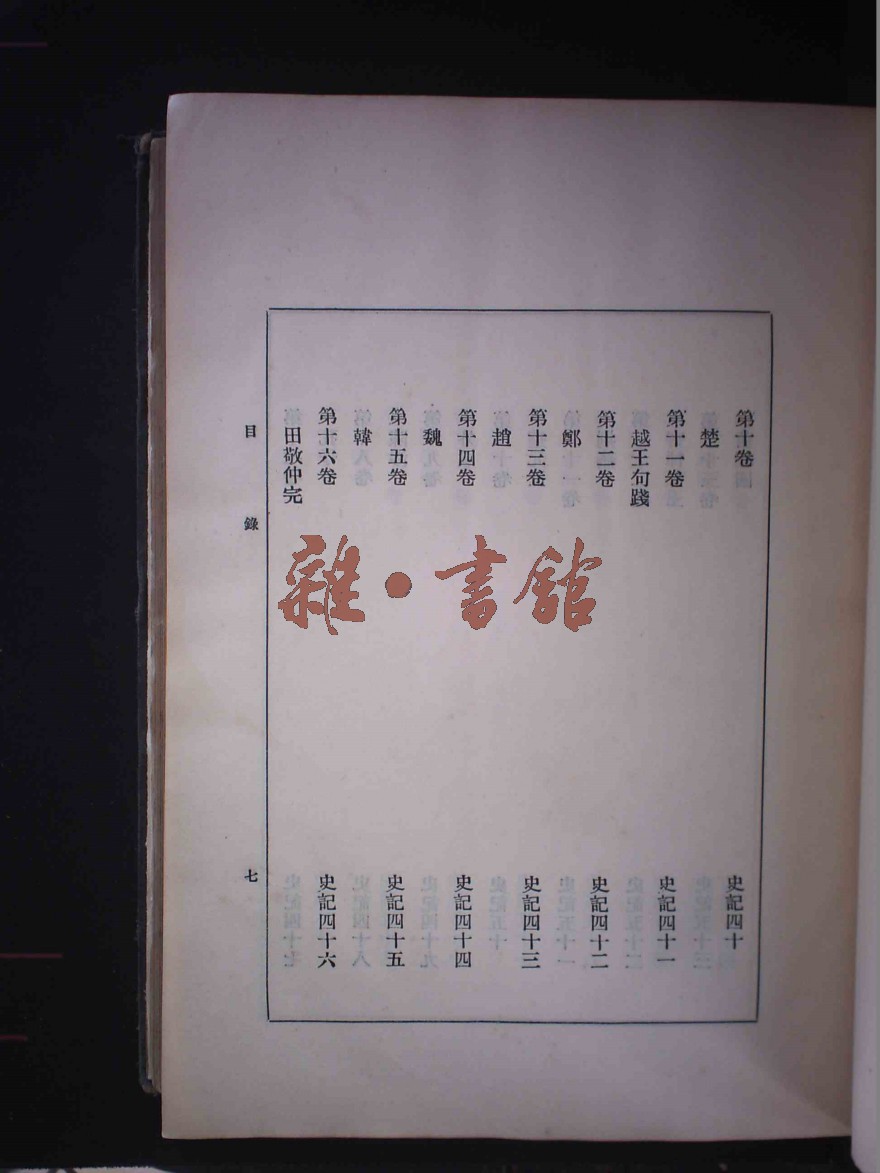 第十卷 史記四十
楚
第十一卷 史記四十一
越王句踐
第十二卷 史記四十二
鄭
第十三卷 史記四十三
趙
第十四卷 史記四十四
魏
第十五卷 史記四十五
韓
第十六卷 史記四十六
田敬仲完
目錄 七
雜·書館